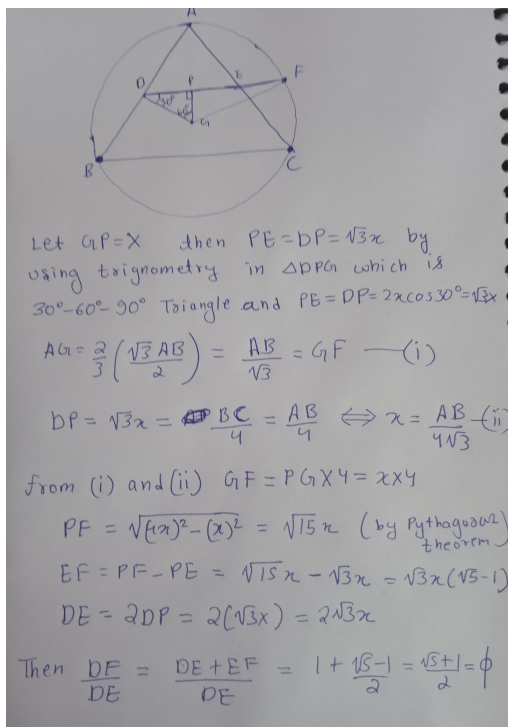 A
D P E F
30° 60° G
B C
Let GP=X then PE=DP=√3x by
using trignometry in △DPG which is
30°-60°-90° Triangle and PE=DP=2xcos30°=√3x
AG = 2/3 (√3 AB/2) = AB/√3 = GF —(i)
DP = √3x = BC/4 = AB/4 ⟺ x = AB/4√3 —(ii)
from (i) and (ii) GF = PG×4 = x×4
PF = √(4x)²-(x)² = √15 x (by Pythagoras
theorem)
EF = PF-PE = √15x - √3x = √3x(√5-1)
DE = 2DP = 2(√3x) = 2√3x
Then DF/DE = DE+EF/DE = 1 + √5-1/2 = √5+1/2 = ϕ